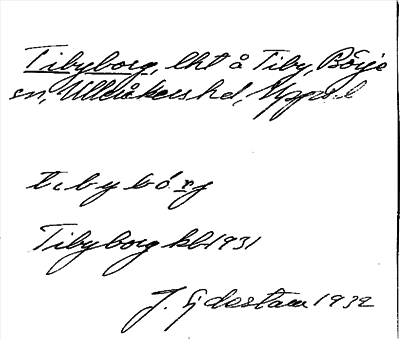 Tibyborg, lht å Tiby, Börje
sn, Ulleråkers hd, Uppsl. l
tibybórj
Tibyborg kbl 1931
J. Sjdestam 1932